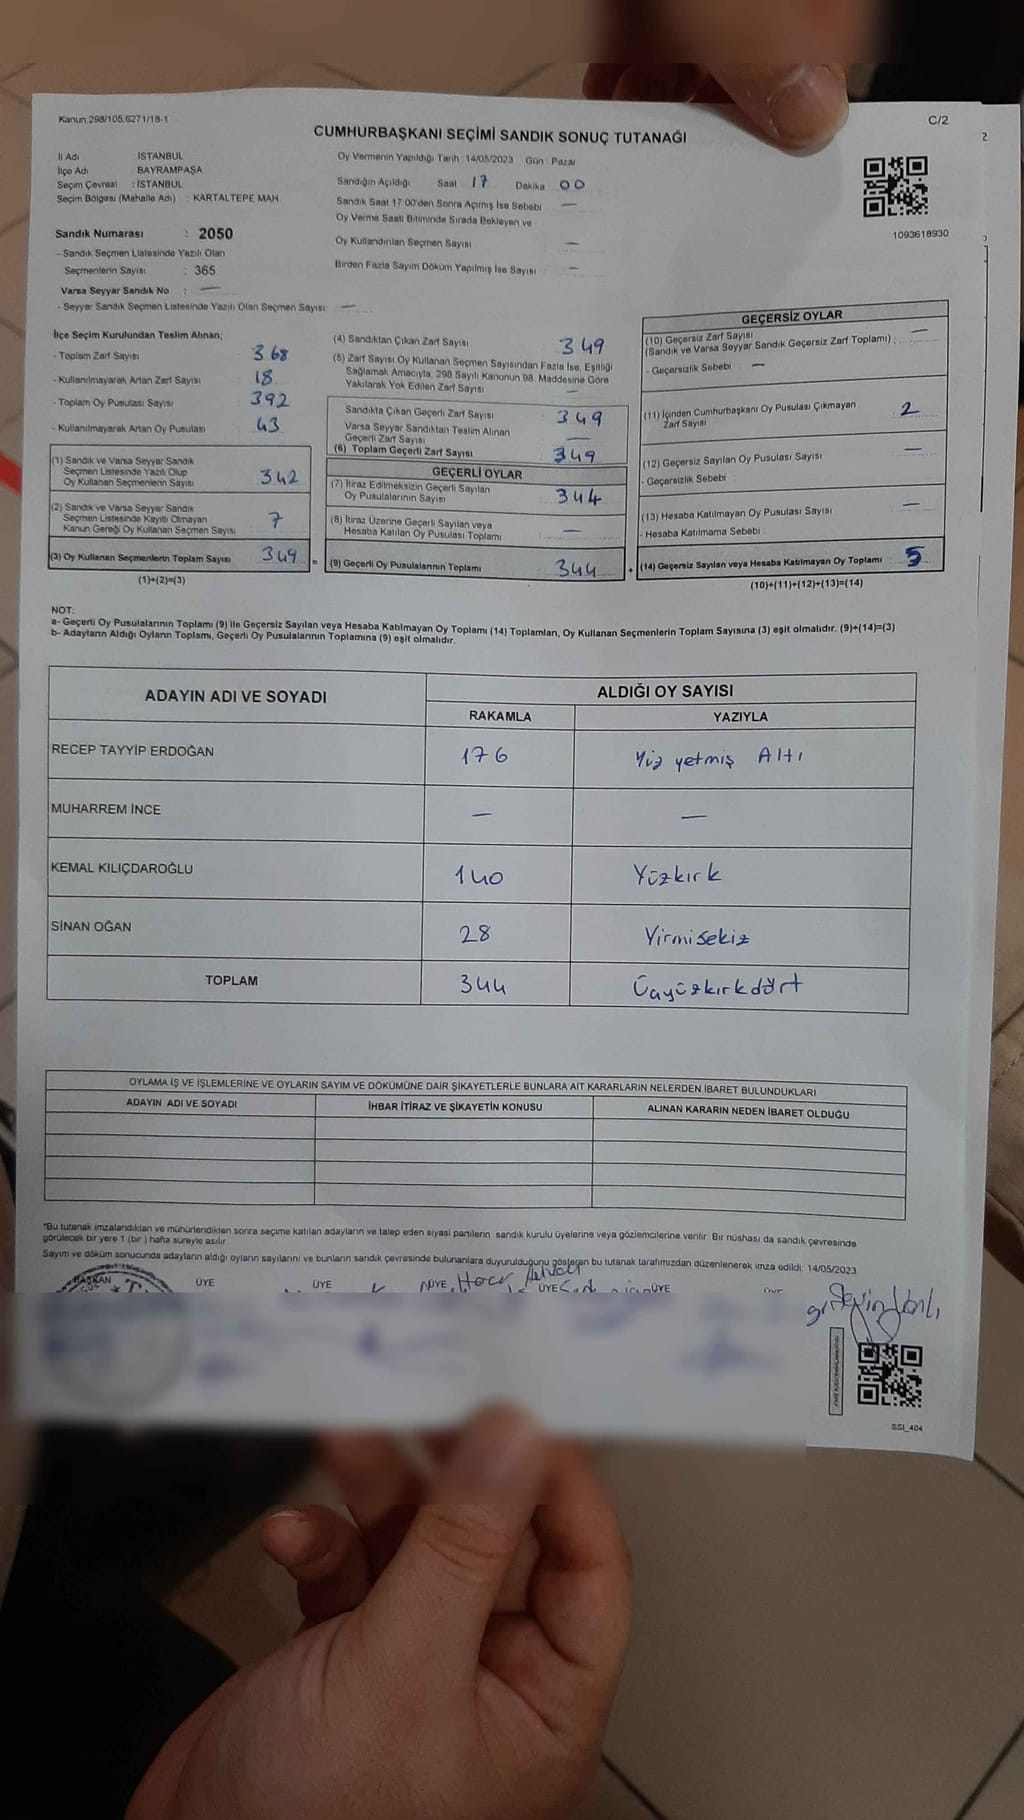 Kanun:298/105,6271/18-1
C/2
2
CUMHURBAŞKANI SEÇİMİ SANDIK SONUÇ TUTANAĞI
İl Adı : İSTANBUL
İlçe Adı : BAYRAMPAŞA
Seçim Çevresi : İSTANBUL
Seçim Bölgesi (Mahalle Adı) : KARTALTEPE MAH
Sandık Numarası : 2050
- Sandık Seçmen Listesinde Yazılı Olan
Seçmenlerin Sayısı : 365
Varsa Seyyar Sandık No : —
- Seyyar Sandık Seçmen Listesinde Yazılı Olan Seçmen Sayısı: —
Oy Vermenin Yapıldığı Tarih :14/05/2023 Gün : Pazar
Sandığın Açıldığı Saat 17 Dakika 00
Sandık Saat 17.00'den Sonra Açımış İse Sebebi —
Oy Verme Saati Bitiminde Sırada Bekleyen ve
Oy Kullandırılan Seçmen Sayısı —
Birden Fazla Sayım Döküm Yapılmış İse Sayısı —
1093618930
İlçe Seçim Kurulundan Teslim Alınan;
- Toplam Zarf Sayısı 368
- Kullanılmayarak Artan Zarf Sayısı 18
- Toplam Oy Pusulası Sayısı 392
- Kullanılmayarak Artan Oy Pusulası 43
(1) Sandık ve Varsa Seyyar Sandık
Seçmen Listesinde Yazılı Olup
Oy Kullanan Seçmenlerin Sayısı 342
(2) Sandık ve Varsa Seyyar Sandık
Seçmen Listesinde Kayıtlı Olmayan
Kanun Gereği Oy Kullanan Seçmen Sayısı 7
(3) Oy Kullanan Seçmenlerin Toplam Sayısı 349 =
(1)+(2)=(3)
(4) Sandıktan Çıkan Zarf Sayısı 349
(5) Zarf Sayısı Oy Kullanan Seçmen Sayısından Fazla İse, Eşitliği
Sağlamak Amacıyla, 298 Sayılı Kanunun 98. Maddesine Göre
Yakılarak Yok Edilen Zarf Sayısı —
Sandıkta Çıkan Geçerli Zarf Sayısı 349
Varsa Seyyar Sandıktan Teslim Alınan
Geçerli Zarf Sayısı —
(6) Toplam Geçerli Zarf Sayısı 349
GEÇERLİ OYLAR
(7) İtiraz Edilmeksizin Geçerli Sayılan
Oy Pusulalarının Sayısı 344
(8) İtiraz Üzerine Geçerli Sayılan veya
Hesaba Katılan Oy Pusulası Toplamı —
(9) Geçerli Oy Pusulalarının Toplamı 344 +
GEÇERSİZ OYLAR
(10) Geçersiz Zarf Sayısı —
(Sandık ve Varsa Seyyar Sandık Geçersiz Zarf Toplamı) :
- Geçersizlik Sebebi : —
(11) İçinden Cumhurbaşkanı Oy Pusulası Çıkmayan
Zarf Sayısı 2
(12) Geçersiz Sayılan Oy Pusulası Sayısı —
- Geçersizlik Sebebi :
(13) Hesaba Katılmayan Oy Pusulası Sayısı —
- Hesaba Katılmama Sebebi :
(14) Geçersiz Sayılan veya Hesaba Katılmayan Oy Toplamı 5
(10)+(11)+(12)+(13)=(14)
NOT:
a- Geçerli Oy Pusulalarının Toplamı (9) ile Geçersiz Sayılan veya Hesaba Katılmayan Oy Toplamı (14) Toplamları, Oy Kullanan Seçmenlerin Toplam Sayısına (3) eşit olmalıdır. (9)+(14)=(3)
b- Adayların Aldığı Oyların Toplamı, Geçerli Oy Pusulalarının Toplamına (9) eşit olmalıdır.
ADAYIN ADI VE SOYADI ALDIĞI OY SAYISI
RAKAMLA YAZIYLA
RECEP TAYYİP ERDOĞAN 176 Yüz yetmiş Altı
MUHARREM İNCE — —
KEMAL KILIÇDAROĞLU 140 Yüzkırk
SİNAN OĞAN 28 Yirmisekiz
TOPLAM 344 Üçyüzkırkdört
OYLAMA İŞ VE İŞLEMLERİNE VE OYLARIN SAYIM VE DÖKÜMÜNE DAİR ŞİKAYETLERLE BUNLARA AİT KARARLARIN NELERDEN İBARET BULUNDUKLARI
ADAYIN ADI VE SOYADI İHBAR İTİRAZ VE ŞİKAYETİN KONUSU ALINAN KARARIN NEDEN İBARET OLDUĞU
*Bu tutanak imzalandıktan ve mühürlendikten sonra seçime katılan adayların ve talep eden siyasi partilerin sandık kurulu üyelerine veya gözlemcilerine verilir. Bir nüshası da sandık çevresinde
görülecek bir yere 1 (bir ) hafta süreyle asılır.
Sayım ve döküm sonucunda adayların aldığı oyların sayılarını ve bunların sandık çevresinde bulunanlara duyurulduğunu gösteren bu tutanak tarafımızdan düzenlenerek imza edildi. 14/05/2023
BAŞKAN ÜYE ÜYE ÜYE ÜYE ÜYE
SSI_404